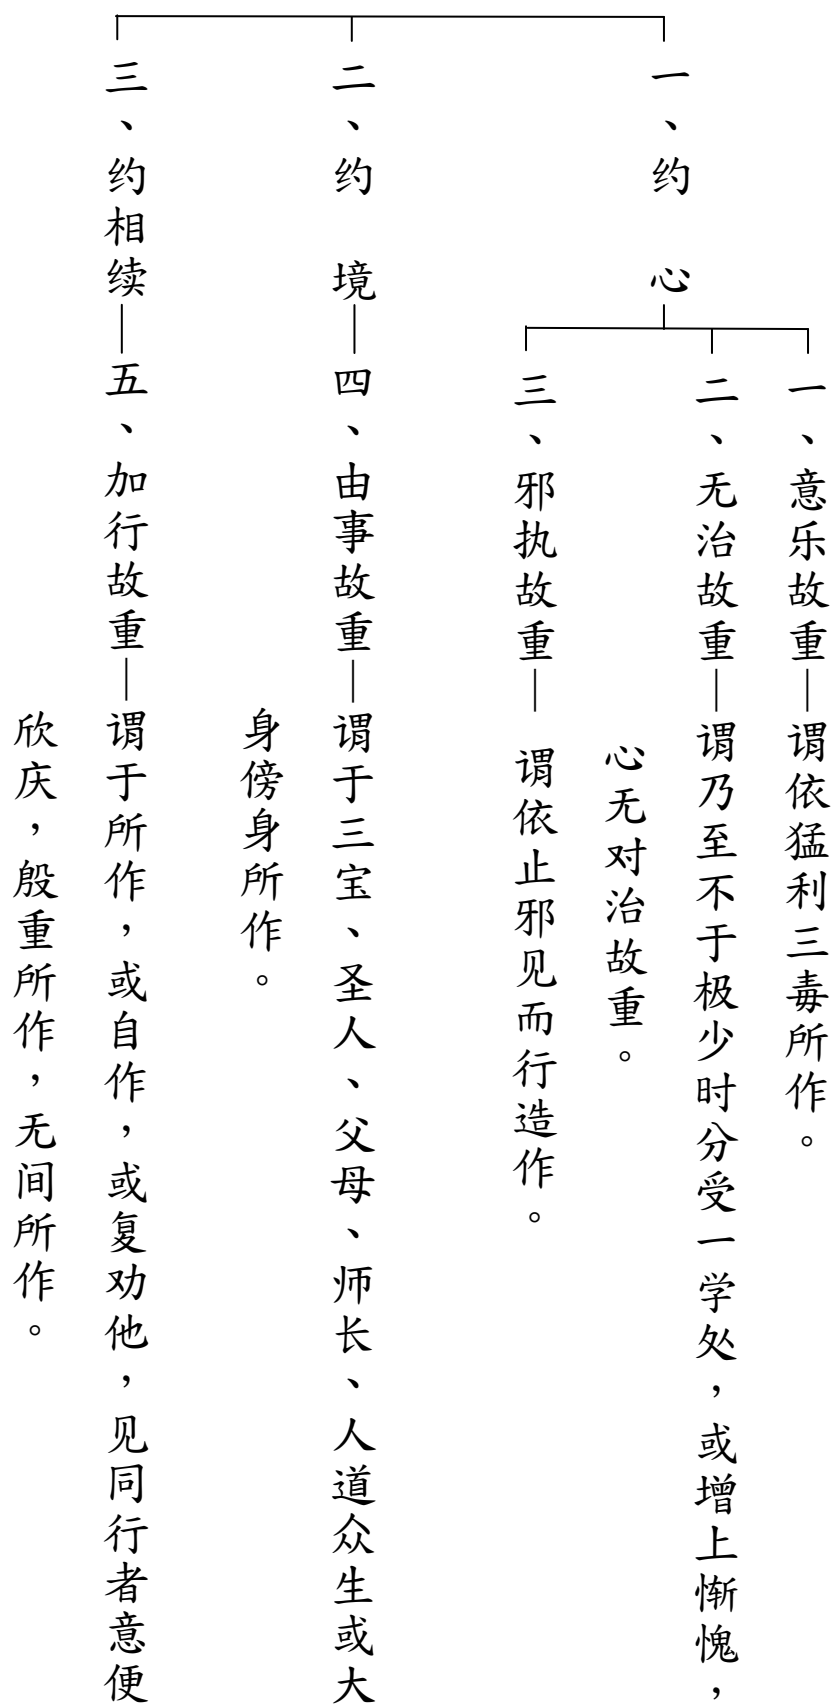 一、约 心
一、意乐故重—谓依猛利三毒所作。
二、无治故重—谓乃至不于极少时分受一学处，或增上惭愧，
心无对治故重。
三、邪执故重—谓依止邪见而行造作。
二、约 境—四、由事故重—谓于三宝、圣人、父母、师长、人道众生或大
身傍身所作。
三、约相续—五、加行故重—谓于所作，或自作，或复劝他，见同行者意便
欣庆，殷重所作，无间所作。